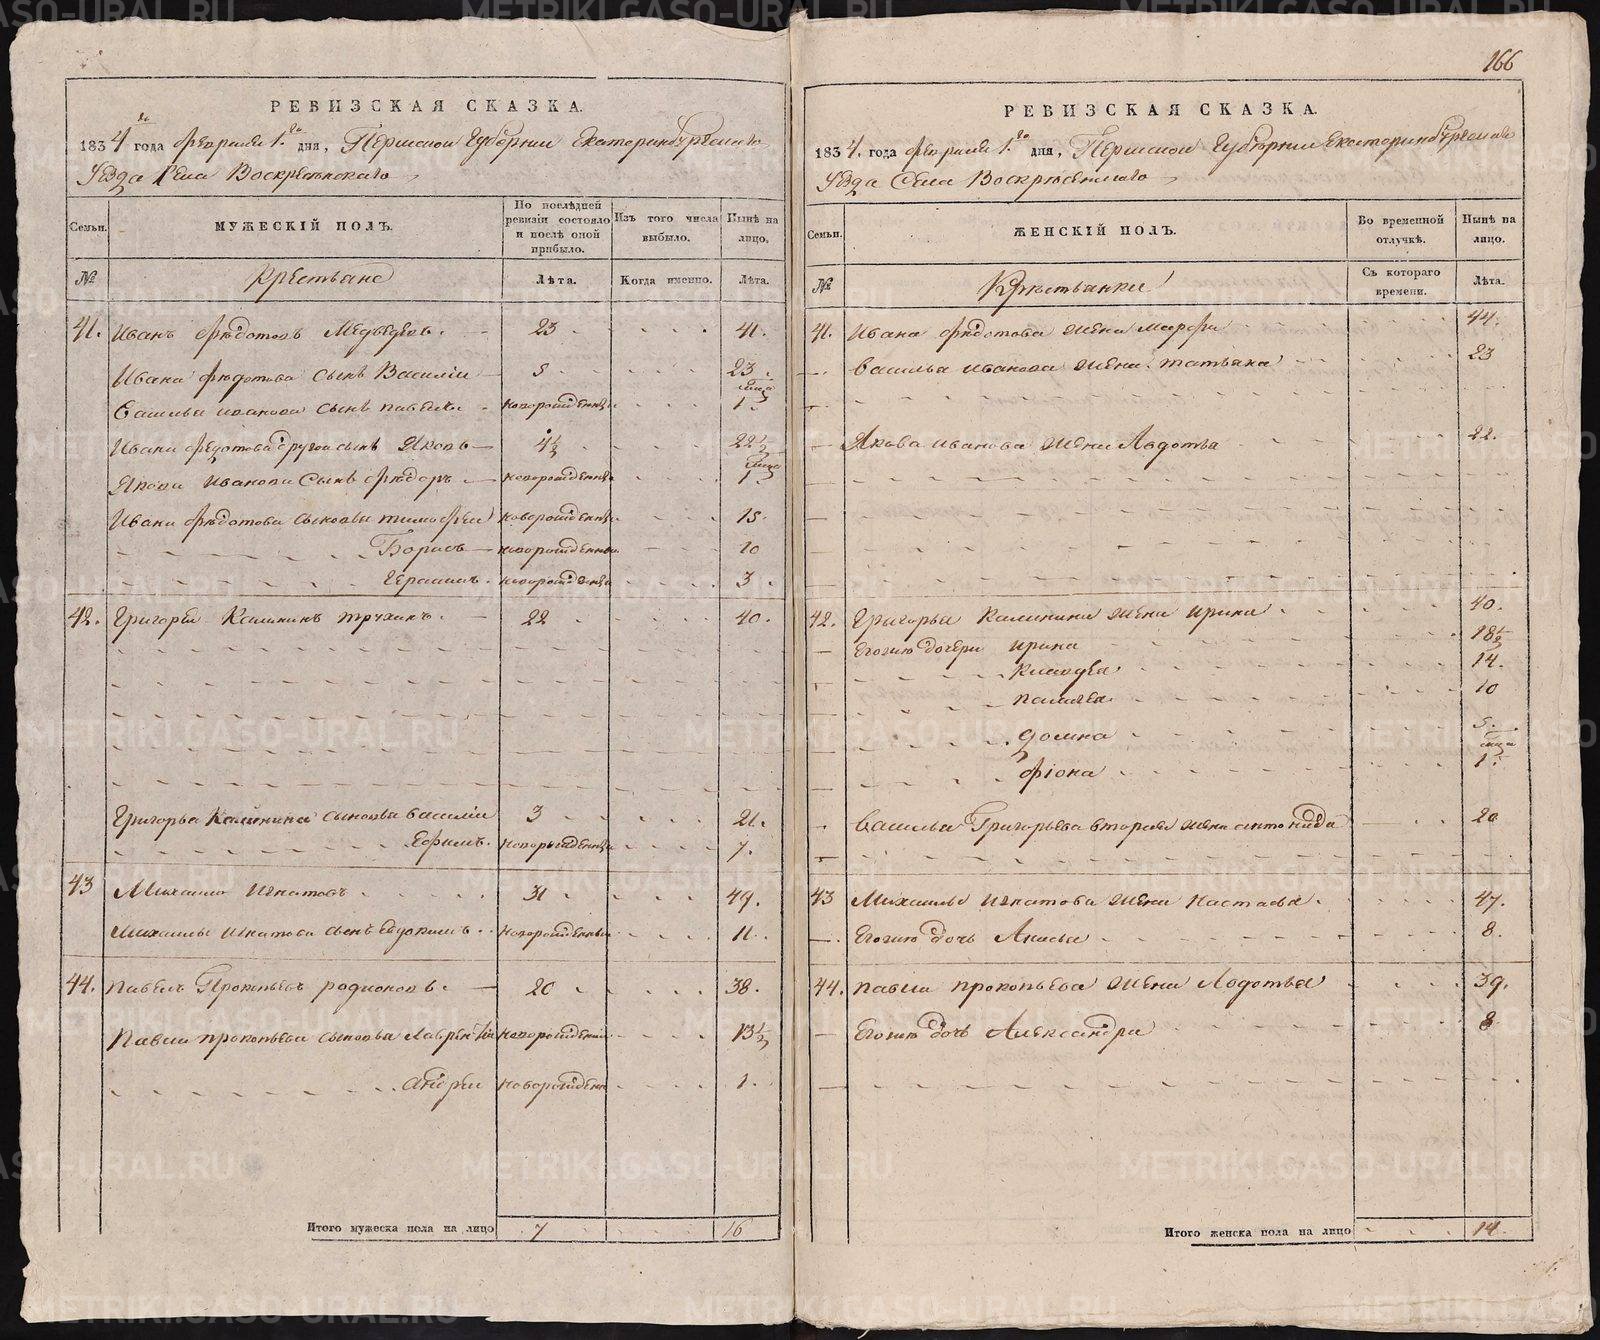 РЕВИЗСКАЯ СКАЗКА.
1834 года февраля 1го дня, Пермской Губернии Екатеринбургскаго
Уѣзда Села Воскресенскаго
Семьи.
МУЖЕСКІЙ ПОЛЪ.
По послѣдней ревизіи состояло и послѣ оной прибыло.
Изъ того числа выбыло.
Нынѣ на лицо.
№
Крестьяне
Лѣта.
Когда именно.
Лѣта.
41. Иванъ Федотовъ Медведевъ. 23 41.
Ивана Федотова сынъ Василіи 5 23.
Василья Иванова сынъ новорожденны 1.
Ивана Федотова другои сынъ Яковъ 4½ 22½
Якова Иванова Сынъ Федоръ новорожденны 1
Ивана Федотова сыновья Тимофеи новорожденны 15.
Борисъ новорожденны 10
Герасимъ. новорожденны 3.
42. Григореи Калининъ 22 40.
Григорья Калинина сыновья Василіи 3 21.
Ефимъ. новорожденны 7.
43 Михаило Игнатовъ 31 49.
Михаилы Игнатова сынъ Евдокимъ новорожденны 11.
44. Павелъ Прокопьевъ Родионовъ. 20 38.
Павла Прокопьева сыновья Лаврентіи новорожденны 13½
Андреи новорожденны 1.
Итого мужеска пола на лицо 7 16
166
РЕВИЗСКАЯ СКАЗКА.
1834. года февраля 1го дня, Пермской Губернии Екатеринбургскаго
Уѣзда Села Воскресенскаго
Семьи.
ЖЕНСКІЙ ПОЛЪ.
Во временной отлучкѣ.
Нынѣ на лицо.
№
Крестьянки
Съ котораго времени.
Лѣта.
41. Ивана Федотова жена Марфа 44.
Василья Иванова жена Татьяна 23
Якова Иванова жена Авдотья 22.
42. Григорья Калинина жена Ирина 40.
Егоже дочери Ирина 18½
Клавдея 14.
Палагея 10
Домна 5.
Фіона 1.
Василья Григорьева вторая жена Антонида 20
43 Михаилы Игнатова жена Настасья. 47.
Егоже дочь Анисья 8.
44. Павла Прокопьева жена Авдотья 39.
Егоже дочь Александра 8
Итого женска пола на лицо 14.
METRIKI.GASO-URAL.RU